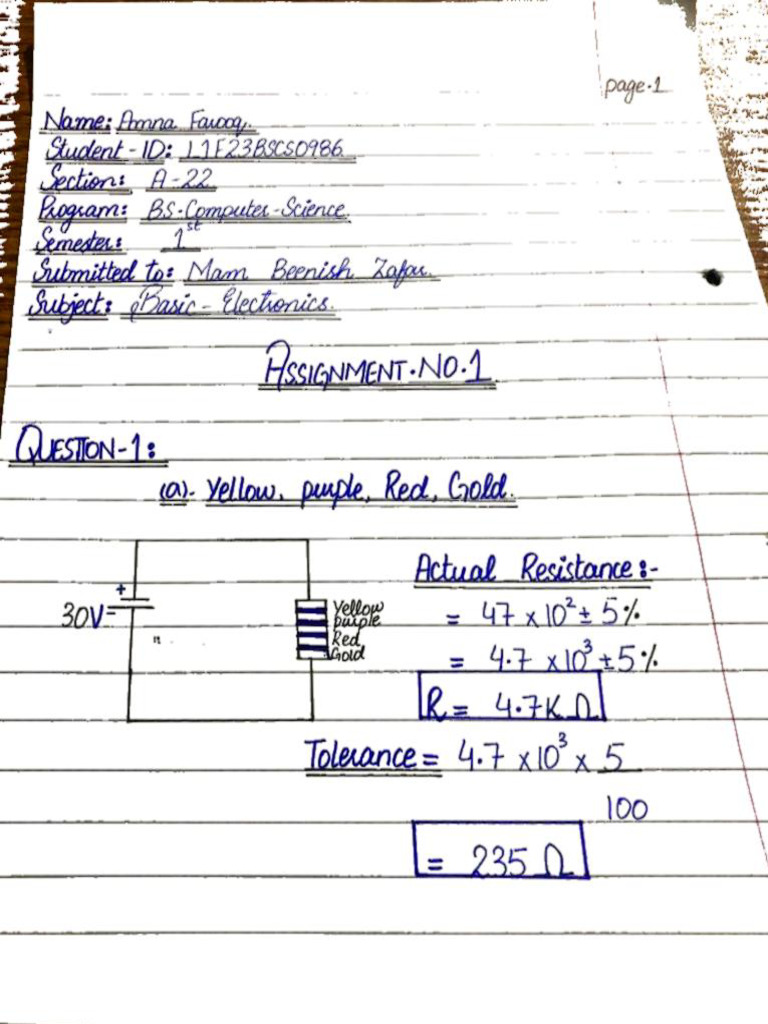 page.1
Name: Amna Farooq.
Student-ID: L1F23BSCS0986
Section: A-22
Program: BS-Computer-Science
Semester: 1st
Submitted to: Mam Beenish Zafar.
Subject: Basic-Electronics.
ASSIGNMENT.NO.1
QUESTION-1:
(a). Yellow, purple, Red, Gold.
Actual Resistance:-
= 47 x 10² ± 5%
= 4.7 x 10³ ± 5%
R = 4.7K Ω
+
30V=
Yellow
purple
Red
Gold
Tolerance = 4.7 x 10³ x 5
100
= 235 Ω